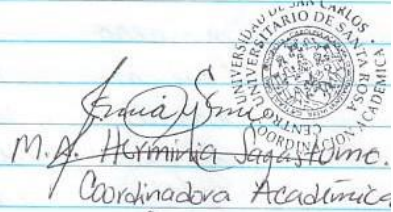 UNIVERSIDAD DE SAN CARLOS
CENTRO UNIVERSITARIO DE SANTA ROSA
COORDINACIÓN ACADEMICA
M.A. Herminia Sagastume.
Coordinadora Académica